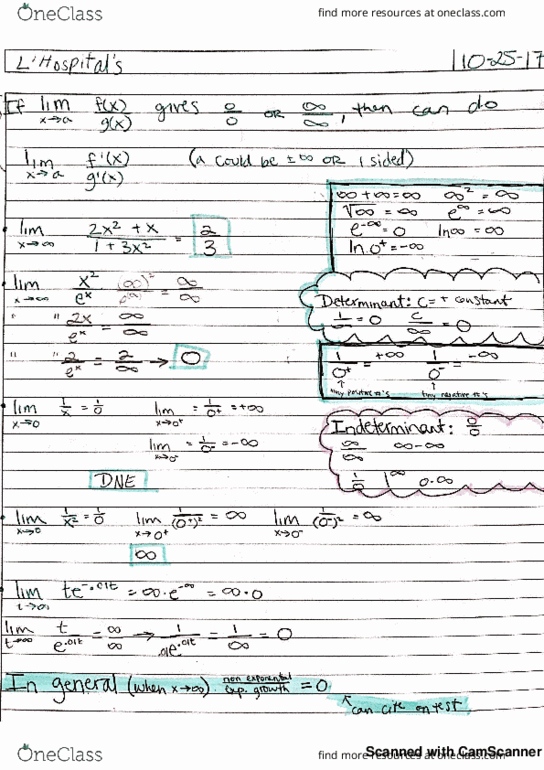 OneClass
find more resources at oneclass.com
L'Hospital's
10-25-17
If lim x→a f(x)/g(x) gives 0/0 OR ∞/∞, then can do
lim x→a f'(x)/g'(x) (a could be ±∞ OR 1 sided)
∞+∞=∞ ∞²=∞
√∞=∞ e^∞=∞
e^-∞=0 ln∞=∞
ln 0⁺=-∞
lim x→∞ 2x²+x / 1+3x² = 2/3
lim x→∞ x²/e^x = ∞/∞
" " 2x/e^x = ∞/∞
" " 2/e^x = 2/∞ → 0
Determinant: C=+ constant
1/∞=0 C/∞=0
1/0⁺ = +∞ 1/0⁻ = -∞
tiny positive #'s tiny negative #'s
lim x→0 1/x = 1/0 lim x→0⁺ = 1/0⁺ = +∞
lim x→0⁻ = 1/0⁻ = -∞
DNE
Indeterminant: 0/0
∞/∞ ∞-∞
1/0 1^∞ 0·∞
lim x→0 1/x² = 1/0 lim x→0⁺ 1/(0⁺)² = ∞ lim x→0⁻ 1/(0⁻)² = ∞
∞
lim t→∞ te^-.01t = ∞·e^-∞ = ∞·0
lim t→∞ t/e^.01t = ∞/∞ → 1/.01e^.01t = 1/∞ = 0
In general (when x→∞) non exponential/exp. growth = 0
can cite on test
OneClass
find more resources at oneclass.com
Scanned with CamScanner